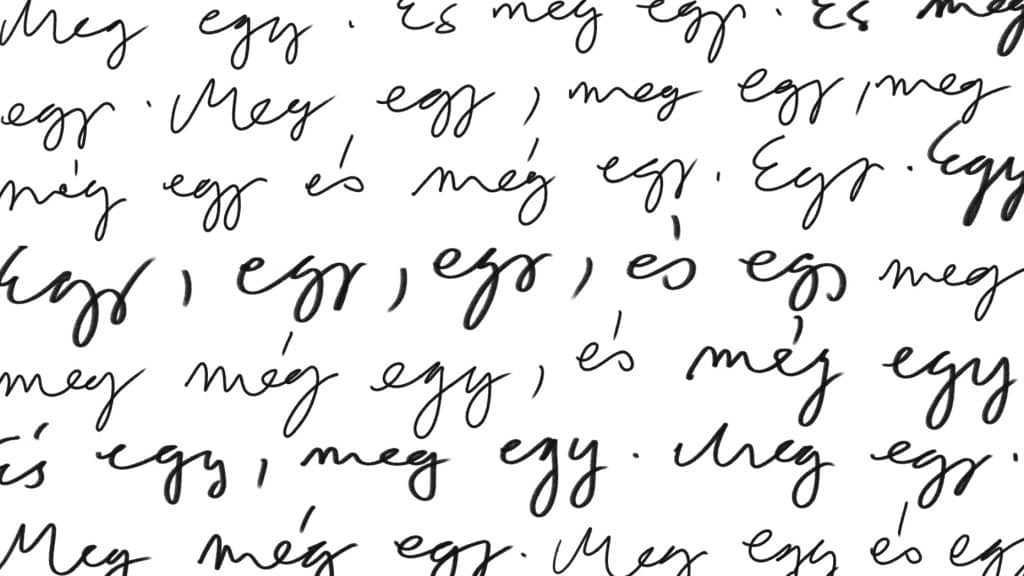 Meg egy. És meg egy. És meg
egy. Meg egy, meg egy, meg
még egy és még egy. Egy. Egy
Egy, egy, egy, és egy meg
meg még egy, és még egy
és egy, meg egy. Meg egy.
Meg még egy. Meg egy és egy